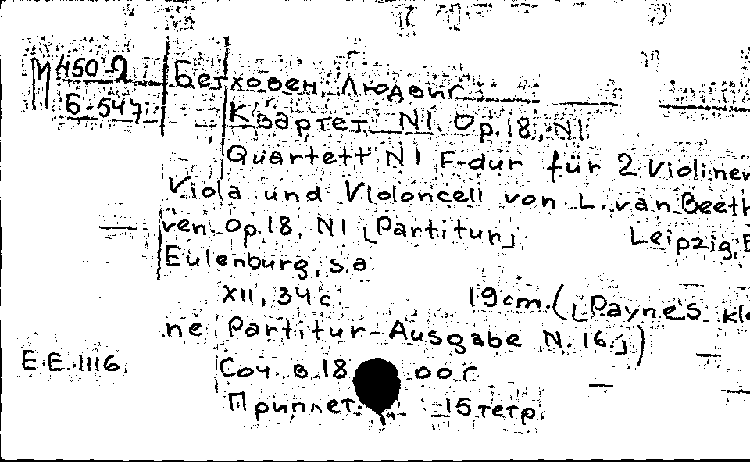 450 Л
Б-547
Бетховен, Людвиг
Квартет N1. Op.18, N1
Quartett N1 F-dur für 2 Violinen
Viola und Violoncell von L. van Beeth
ven. Op.18, N1 [Partitur] Leipzig, E
Eulenburg, s.a
XII, 34 с. 19 cm. ([Payne's kle
ne Partitur-Ausgabe N. 16.])
E.E. 1116. Соч. в 18
Приплет. 15 тетр.